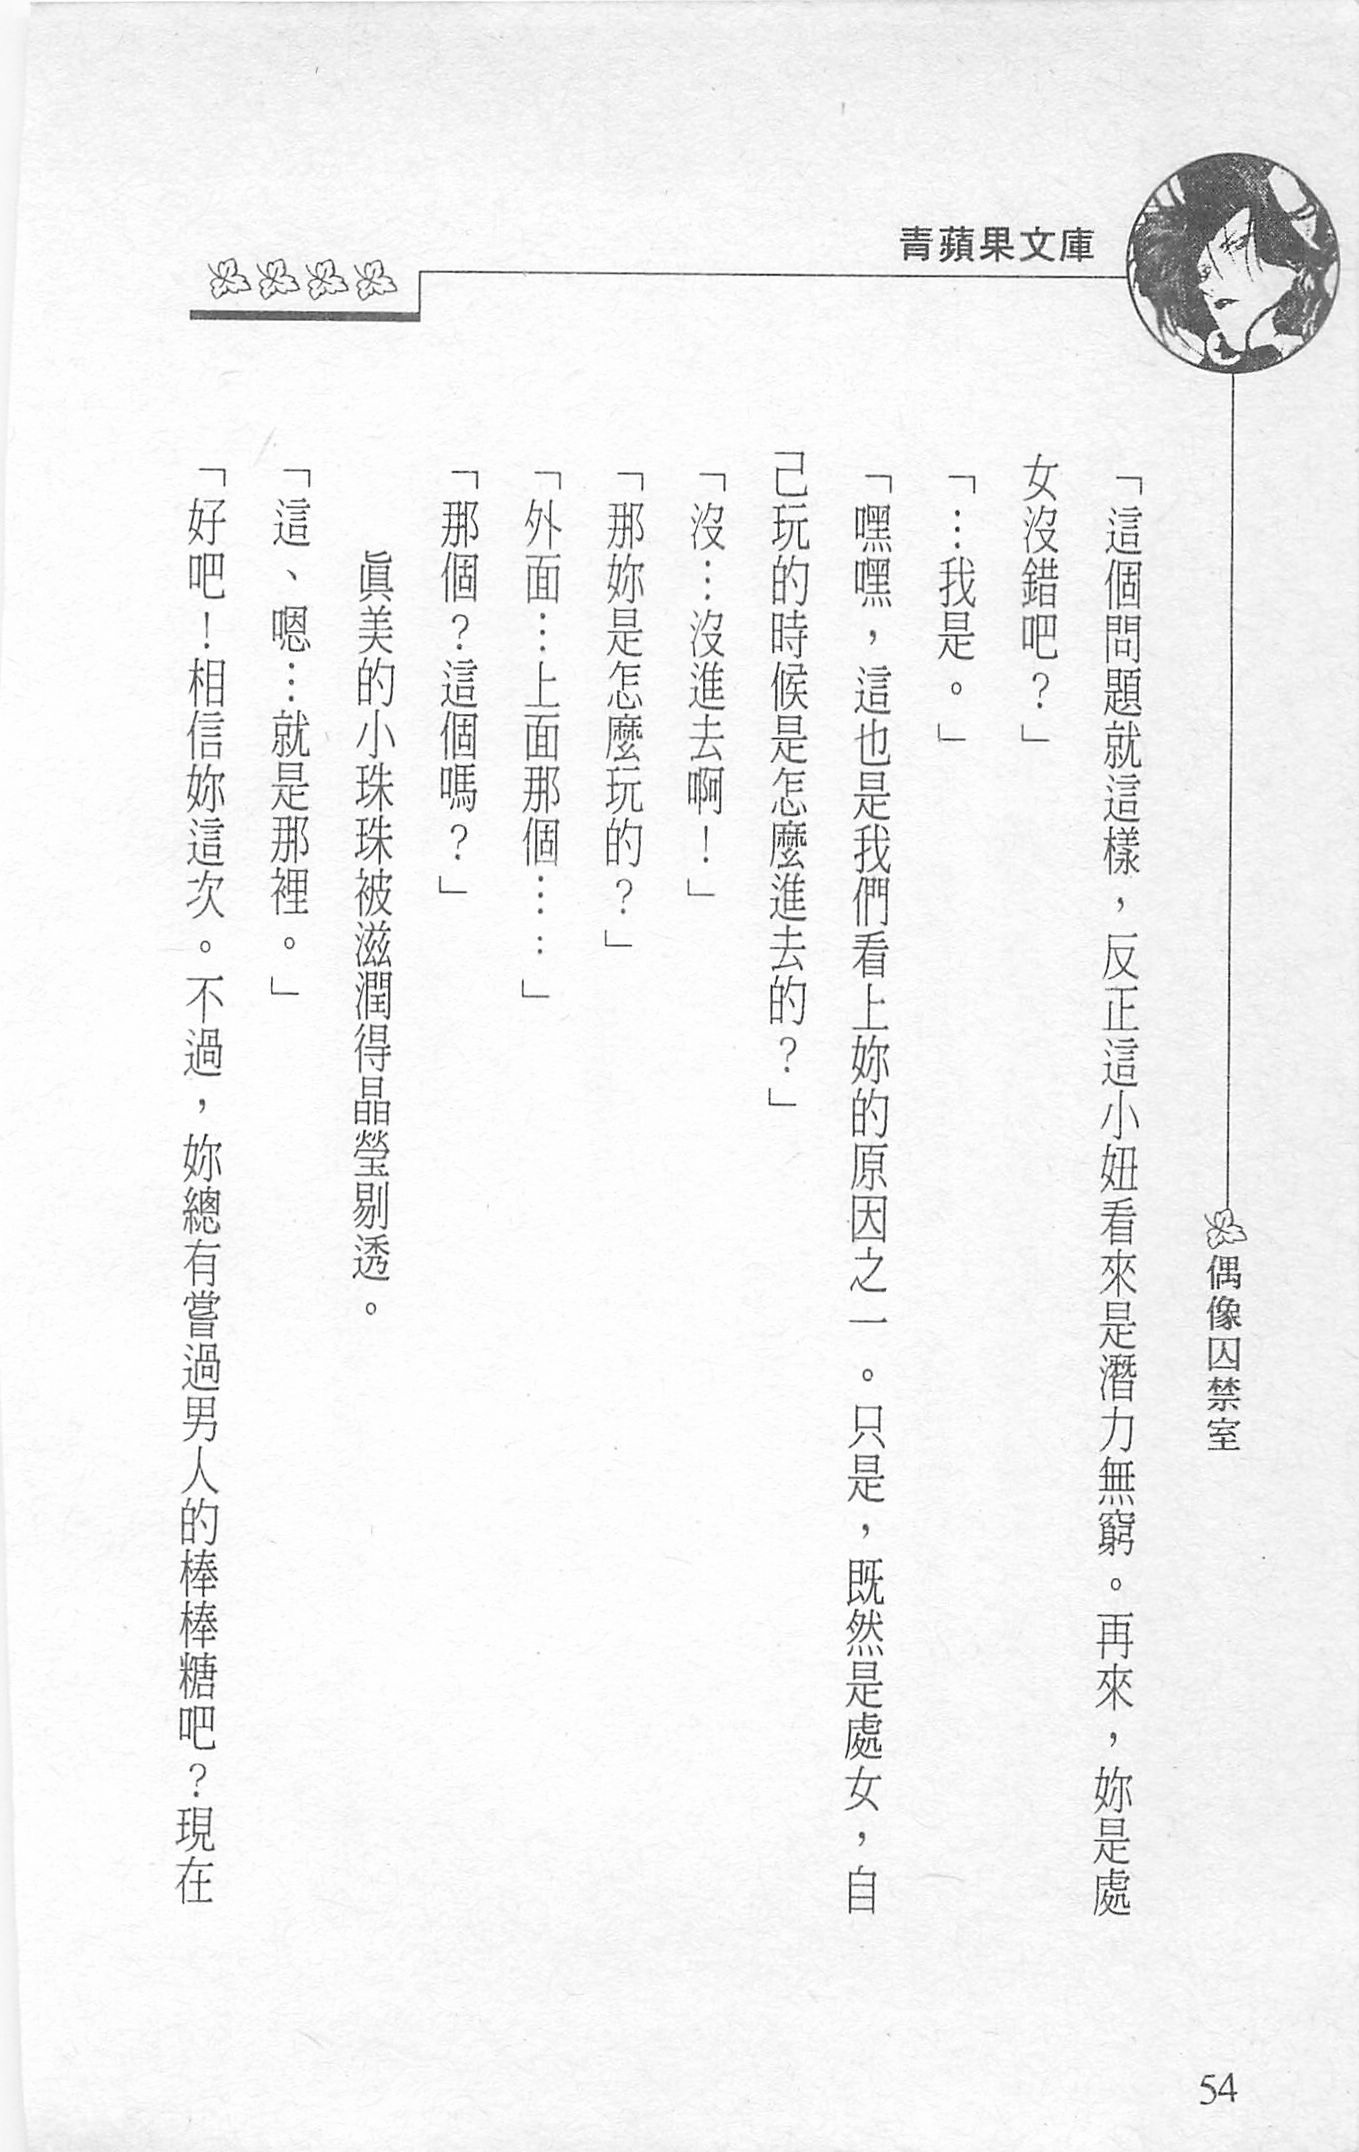 青蘋果文庫
偶像囚禁室
「這個問題就這樣，反正這小妞看來是潛力無窮。再來，妳是處
女沒錯吧？」
「…我是。」
「嘿嘿，這也是我們看上妳的原因之一。只是，既然是處女，自
己玩的時候是怎麼進去的？」
「沒…沒進去啊！」
「那妳是怎麼玩的？」
「外面…上面那個……」
「那個？這個嗎？」
眞美的小珠珠被滋潤得晶瑩剔透。
「這、嗯…就是那裡。」
「好吧！相信妳這次。不過，妳總有嘗過男人的棒棒糖吧？現在
54